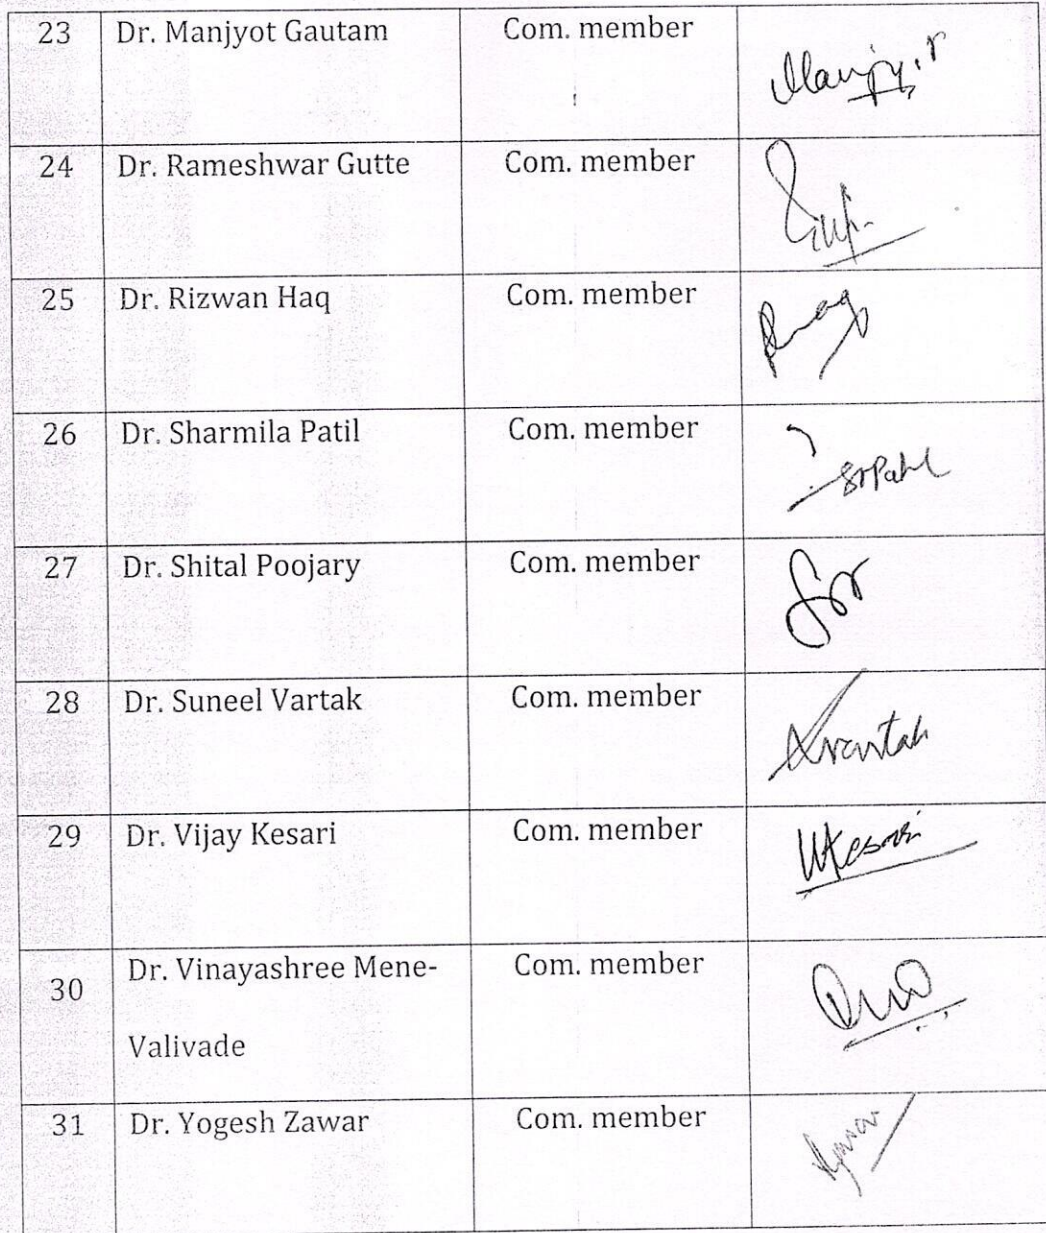 23 Dr. Manjyot Gautam Com. member
24 Dr. Rameshwar Gutte Com. member
25 Dr. Rizwan Haq Com. member
26 Dr. Sharmila Patil Com. member
SPatil
27 Dr. Shital Poojary Com. member
28 Dr. Suneel Vartak Com. member
29 Dr. Vijay Kesari Com. member
VKesari
30 Dr. Vinayashree Mene- Com. member
Valivade
31 Dr. Yogesh Zawar Com. member